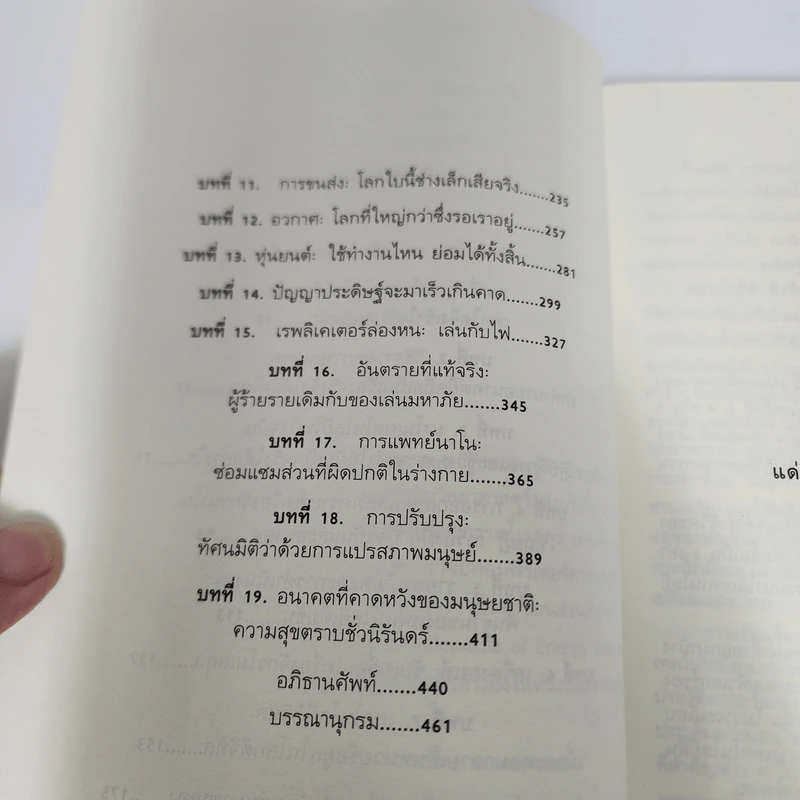 บทที่ 11. การขนส่ง: โลกใบนี้ช่างเล็กเสียจริง.......235
บทที่ 12. อวกาศ: โลกที่ใหญ่กว่าซึ่งรอเราอยู่.......257
บทที่ 13. หุ่นยนต์: ใช้ทำงานไหน ย่อมได้ทั้งสิ้น.......281
บทที่ 14. ปัญญาประดิษฐ์จะมาเร็วเกินคาด.......299
บทที่ 15. เรพลิเคเตอร์ล่องหน: เล่นกับไฟ.......327
บทที่ 16. อันตรายที่แท้จริง:
ผู้ร้ายรายเดิมกับของเล่นมหาภัย.......345
บทที่ 17. การแพทย์นาโน:
ซ่อมแซมส่วนที่ผิดปกติในร่างกาย.......365
บทที่ 18. การปรับปรุง:
ทัศนมิติว่าด้วยการแปรสภาพมนุษย์.......389
บทที่ 19. อนาคตที่คาดหวังของมนุษยชาติ:
ความสุขตราบชั่วนิรันดร์.......411
อภิธานศัพท์.......440
บรรณานุกรม.......461
แด่